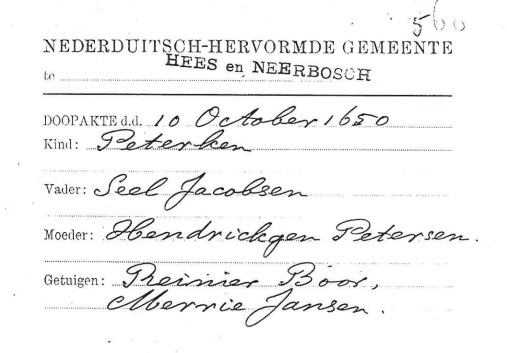 560
NEDERDUITSCH-HERVORMDE GEMEENTE
te HEES en NEERBOSCH
DOOPAKTE d.d. 10 October 1650
Kind: Peterken
Vader: Seel Jacobsen
Moeder: Hendrickgen Petersen.
Getuigen: Reinier Boor,
Merrie Jansen.